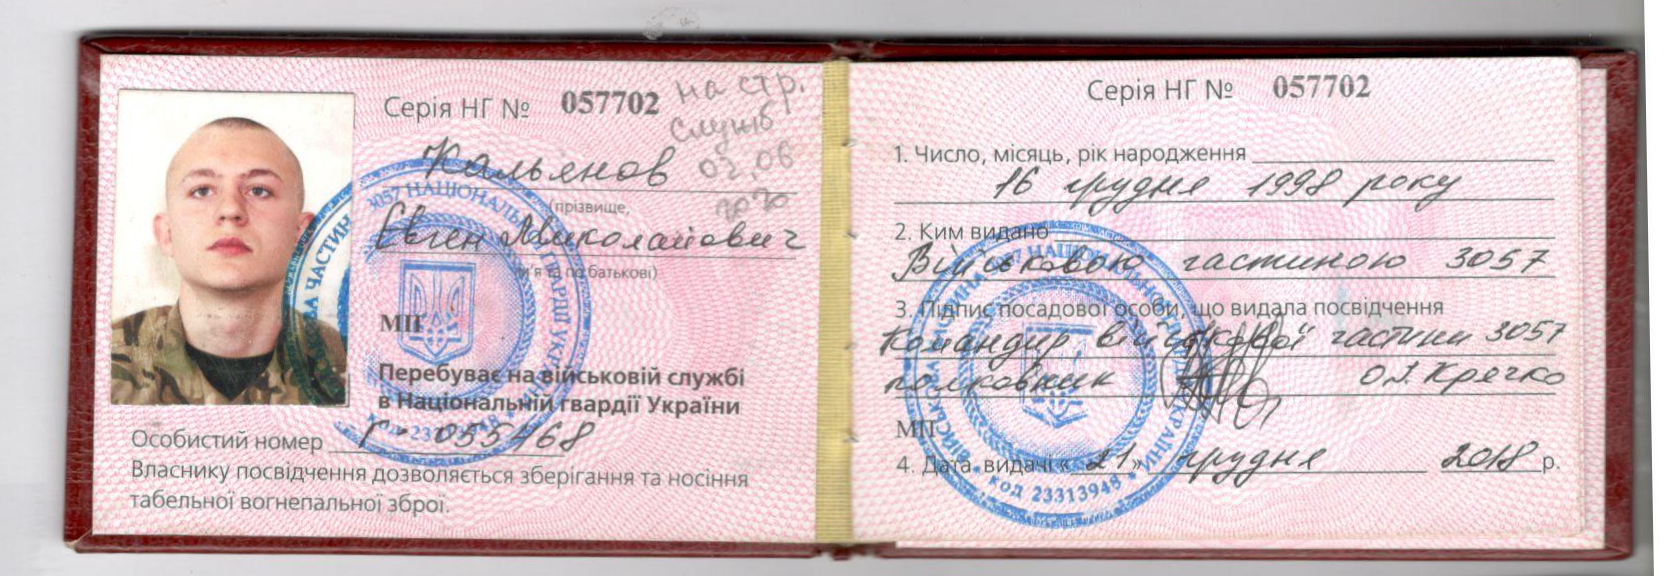 Серія НГ № 057702
на стр.
служб
02.06
Кальянов
(прізвище,
Євген Миколайович
(ім'я та по батькові)
МП
Перебуває на військовій службі
в Національній гвардії України
Особистий номер Г - 055468
Власнику посвідчення дозволяється зберігання та носіння
табельної вогнепальної зброї.
Серія НГ № 057702
1. Число, місяць, рік народження
16 грудня 1998 року
2. Ким видано
Військовою частиною 3057
3. Підпис посадової особи, що видала посвідчення
Командир військової частини 3057
полковник
МП
4. Дата видачі « 21 » грудня 2018 р.
код 23313948